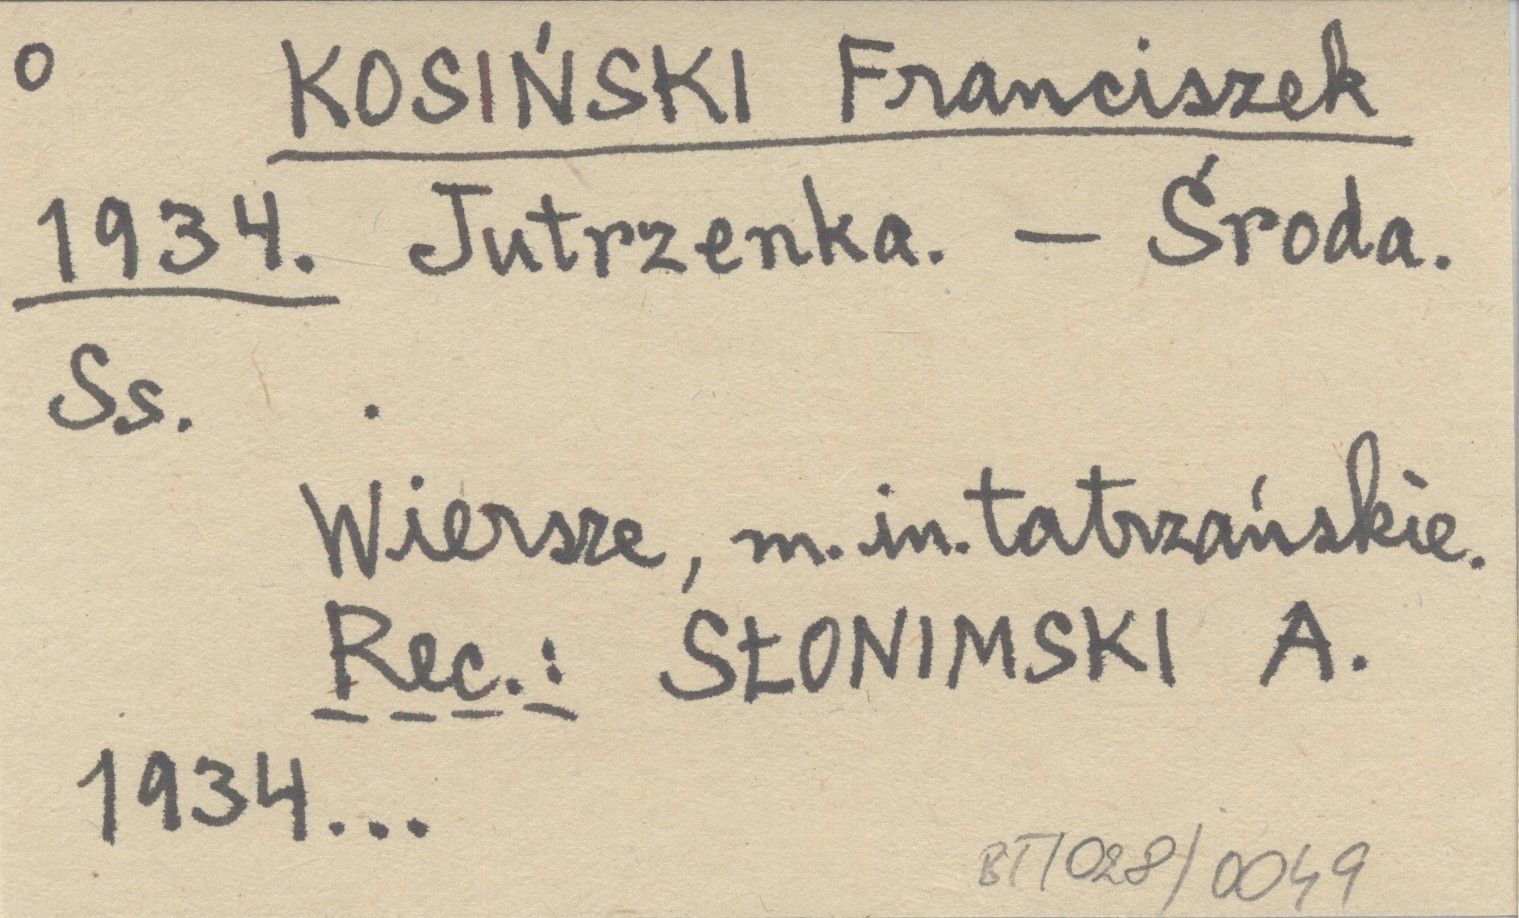 o KOSIŃSKI Franciszek
1934. Jutrzenka. — Środa.
Ss. .
Wiersze, m.in. tatrzańskie.
Rec.: SŁONIMSKI A.
1934...
BT/028/0049